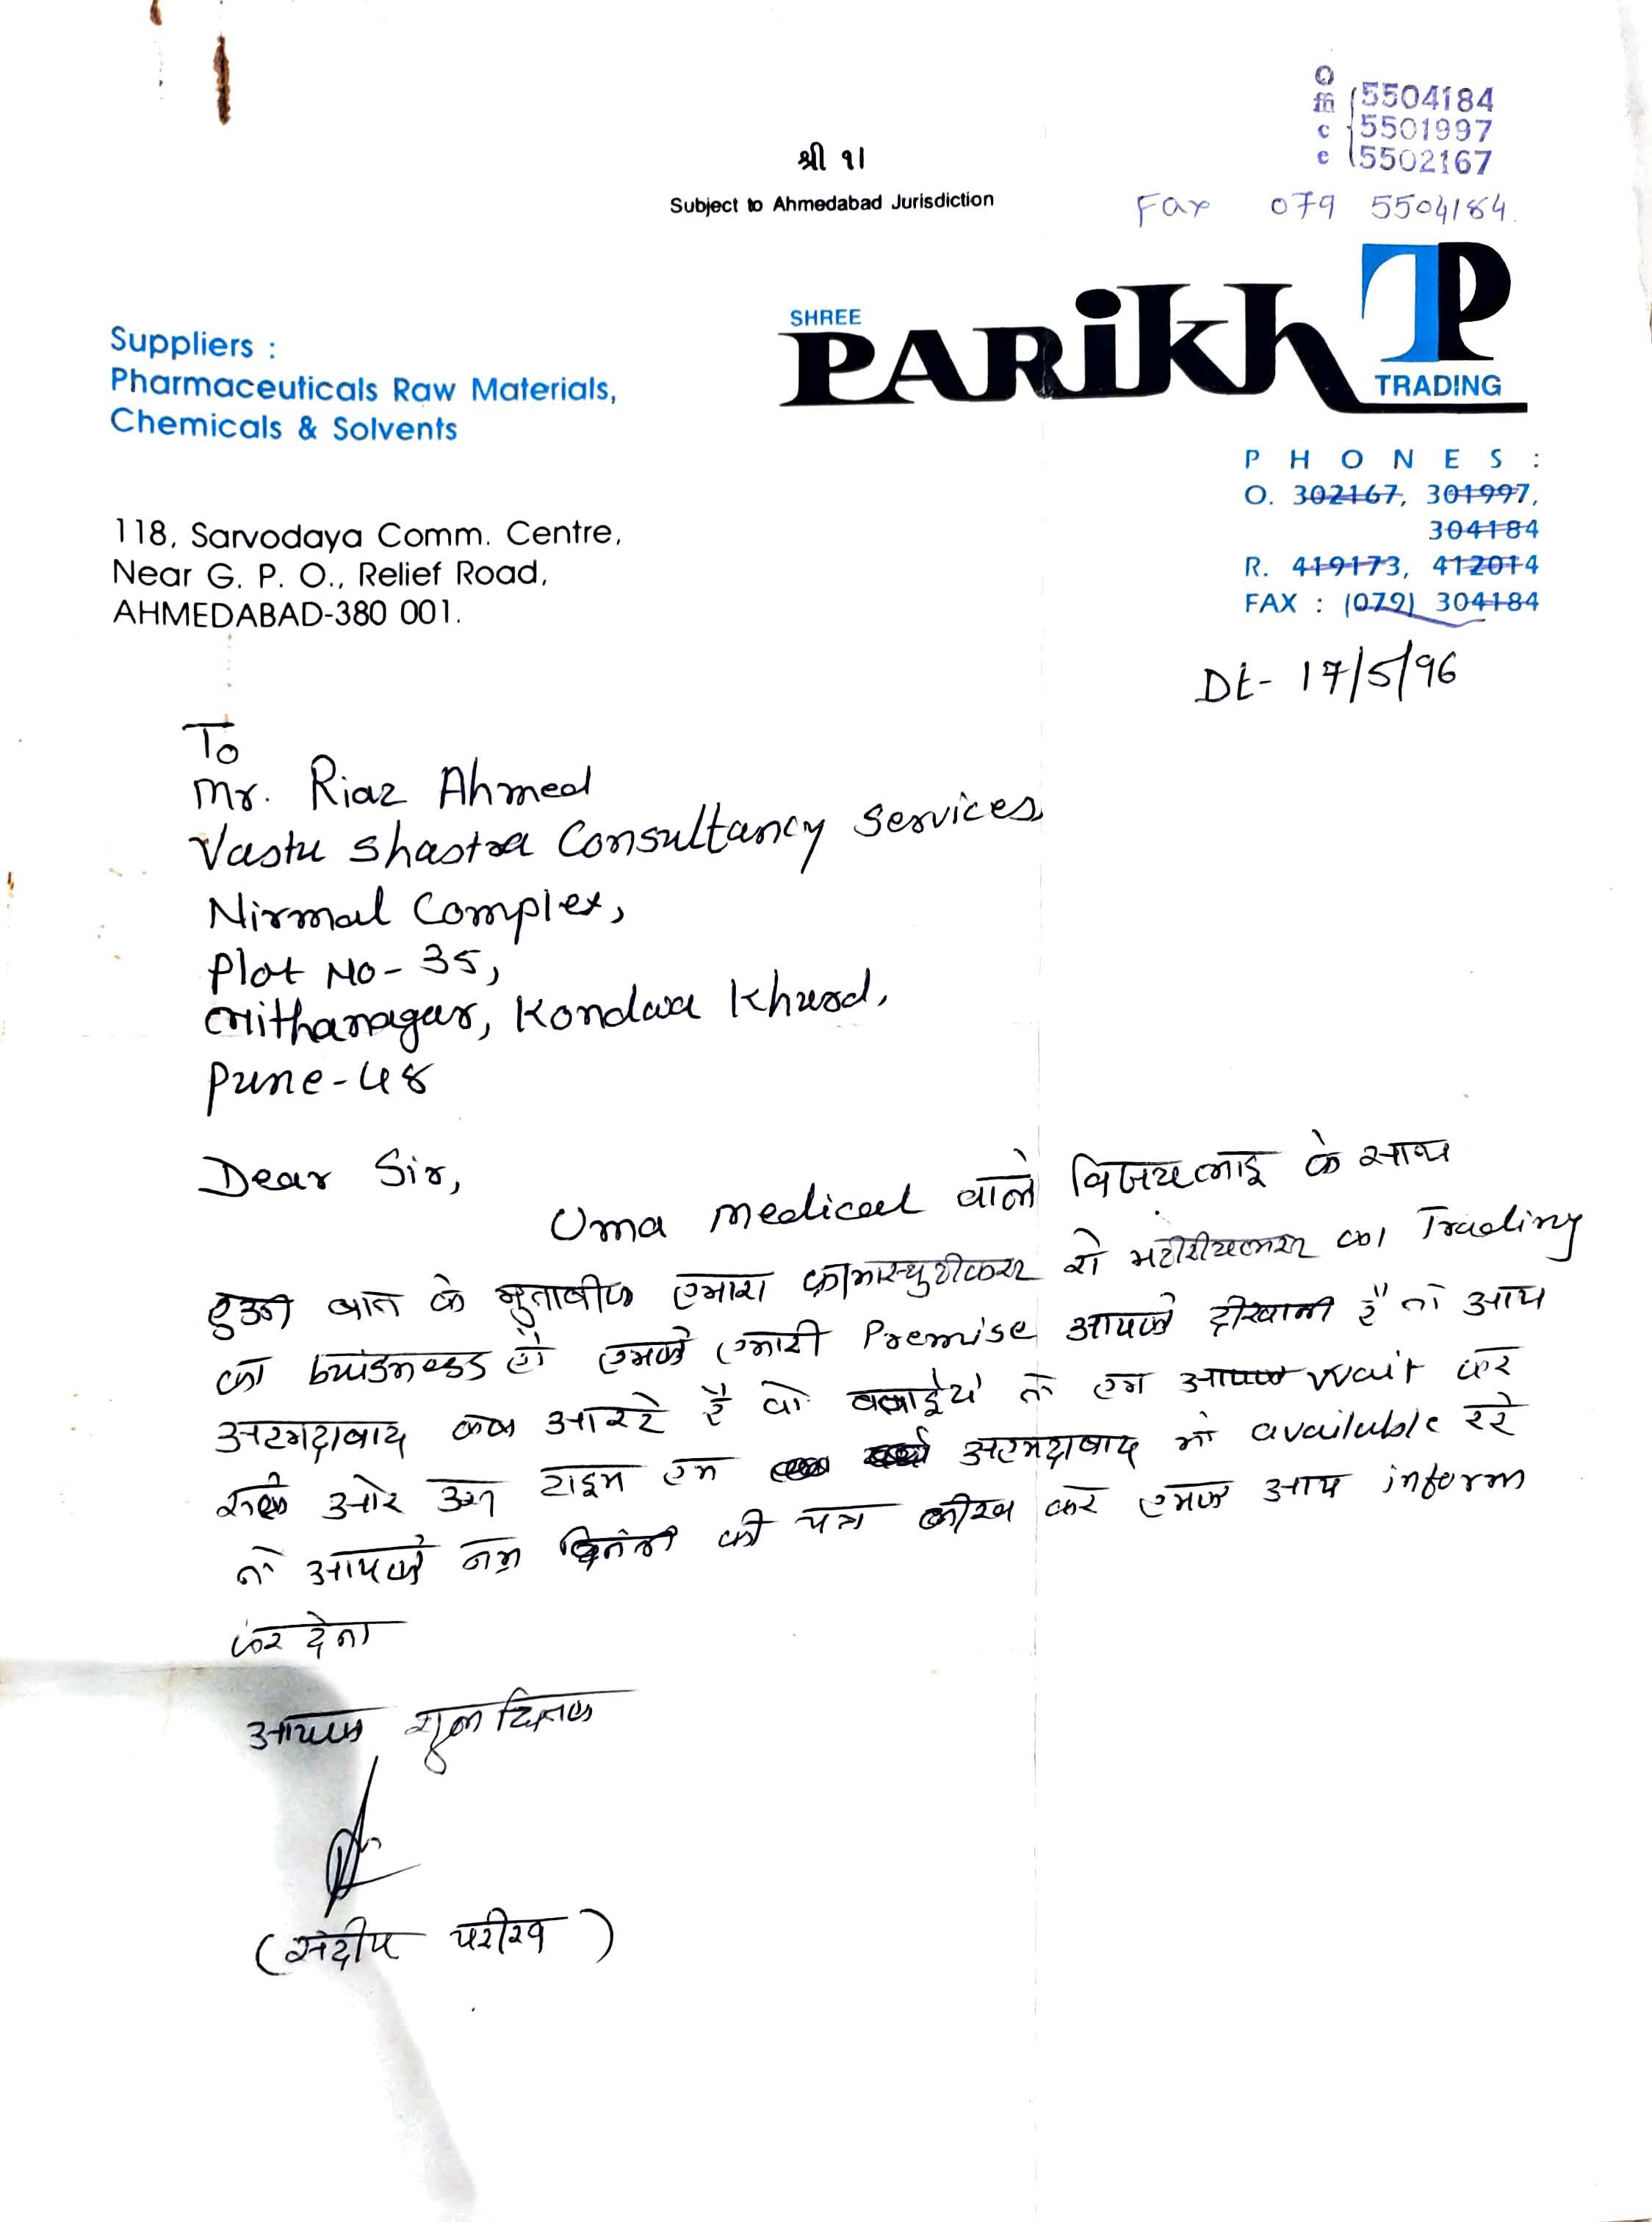 Office
5504184
5501997
5502167
श्री १।
Subject to Ahmedabad Jurisdiction
Fax 079 5504184
SHREE
PARIKH TP
TRADING
Suppliers :
Pharmaceuticals Raw Materials,
Chemicals & Solvents
118, Sarvodaya Comm. Centre,
Near G. P. O., Relief Road,
AHMEDABAD-380 001.
PHONES :
O. 302167, 301997,
304184
R. 419173, 412014
FAX : (079) 304184
Dt- 17/5/96
To
Mr. Riaz Ahmed
Vastu Shastra Consultancy Services,
Nirmal Complex,
Plot No- 35,
Mithanagar, Kondwa Khurd,
Pune-48
Dear Sir,
Uma medical वाले विजयभाइ के साथ
हुई बात के मुताबीक हमारा फ़ार्मास्युटीकल रो मटीरीयल्स का Trading
का business है हमको हमारी Premise आपको दीखानी है तो आप
अहमदाबाद कब आ रहे है वो बताईये तो हम wait कर
सके ओर उस टाइम हम अहमदाबाद में available रहे
तो आपको नम्र विनंती की पत्र लीख कर हमको आप inform
कर देना
आपका शुभचिंतक
(संदीप परीख)